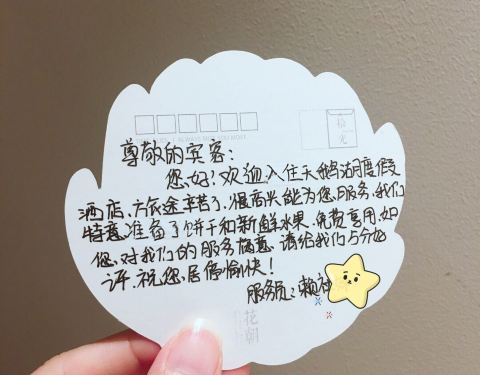 I ALWAYS MISS YOU MOST
尊敬的宾客:
您好!欢迎入住天鹅湖度假
酒店,方旅途辛苦了,很高兴能为您服务,我们
特意准备了饼干和新鲜水果,免费享用,如
您,对我们的服务满意,请给我们5分好
评,祝您,居停愉快!
服务员:赖
花朝